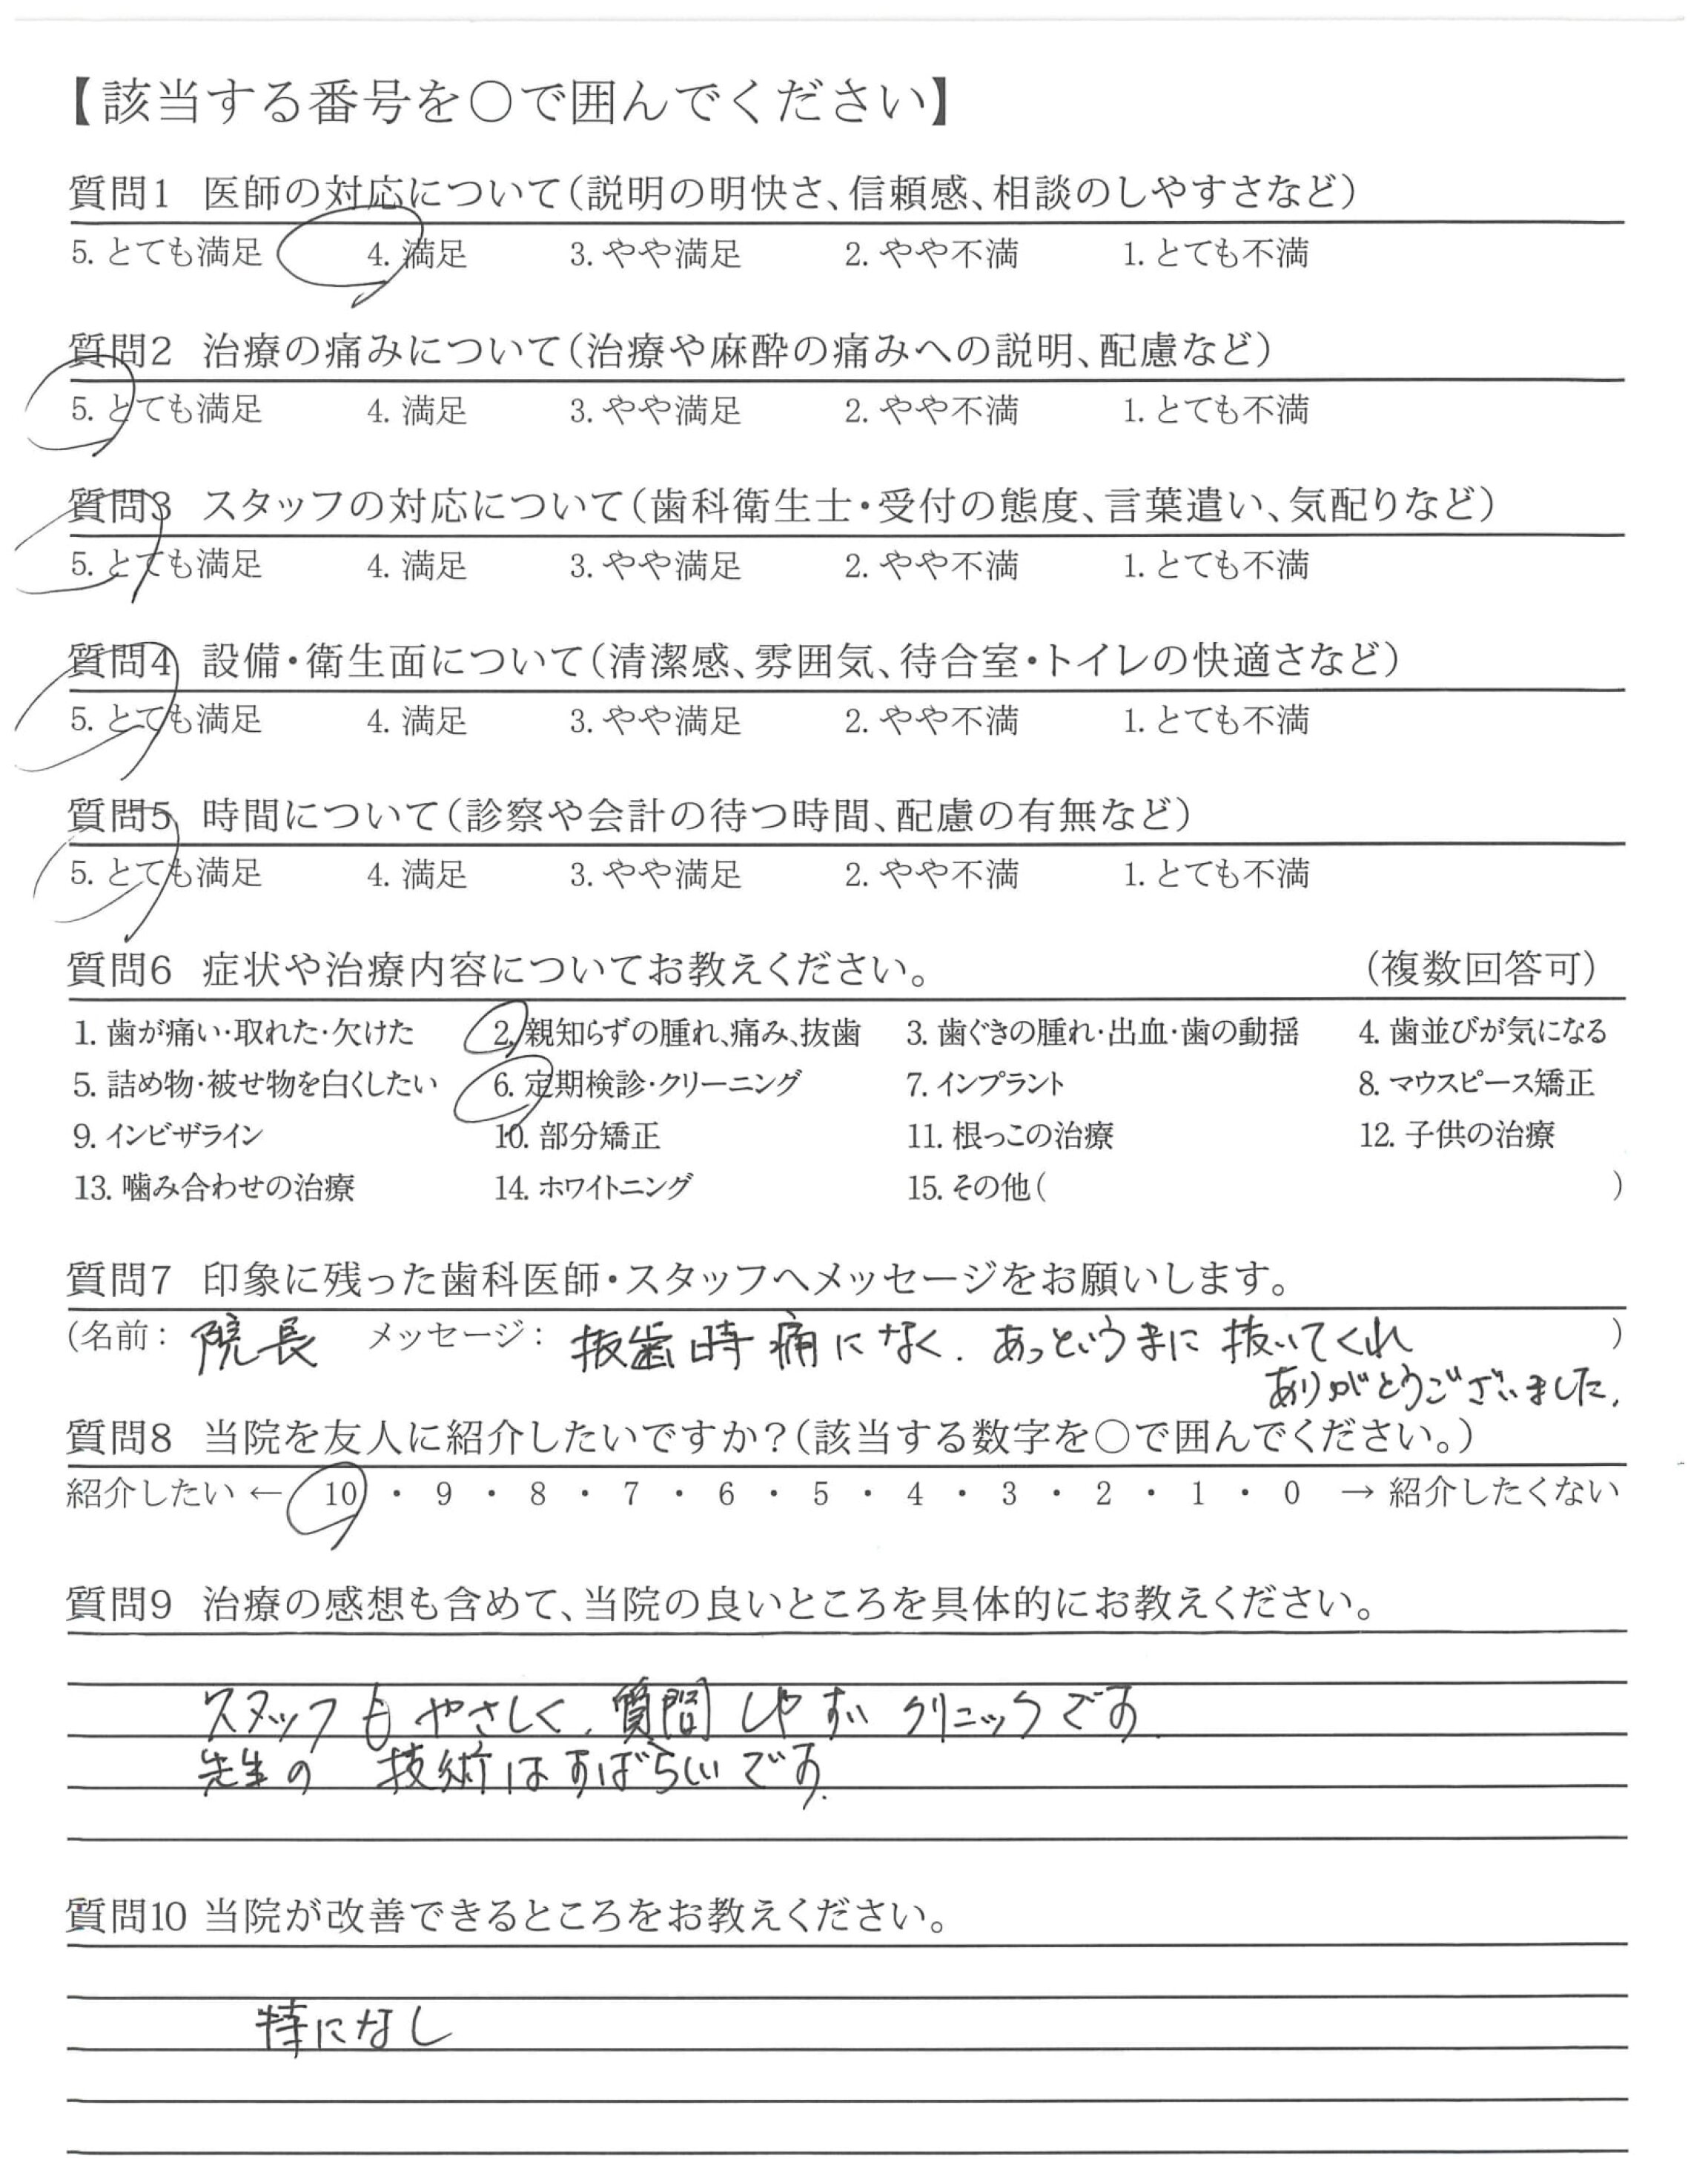 【該当する番号を○で囲んでください】
質問1 医師の対応について(説明の明快さ、信頼感、相談のしやすさなど)
5. とても満足 4. 満足 3. やや満足 2. やや不満 1. とても不満
質問2 治療の痛みについて(治療や麻酔の痛みへの説明、配慮など)
5. とても満足 4. 満足 3. やや満足 2. やや不満 1. とても不満
質問3 スタッフの対応について(歯科衛生士・受付の態度、言葉遣い、気配りなど)
5. とても満足 4. 満足 3. やや満足 2. やや不満 1. とても不満
質問4 設備・衛生面について(清潔感、雰囲気、待合室・トイレの快適さなど)
5. とても満足 4. 満足 3. やや満足 2. やや不満 1. とても不満
質問5 時間について(診察や会計の待つ時間、配慮の有無など)
5. とても満足 4. 満足 3. やや満足 2. やや不満 1. とても不満
質問6 症状や治療内容についてお教えください。 (複数回答可)
1. 歯が痛い・取れた・欠けた 2. 親知らずの腫れ、痛み、抜歯 3. 歯ぐきの腫れ・出血・歯の動揺 4. 歯並びが気になる
5. 詰め物・被せ物を白くしたい 6. 定期検診・クリーニング 7. インプラント 8. マウスピース矯正
9. インビザライン 10. 部分矯正 11. 根っこの治療 12. 子供の治療
13. 噛み合わせの治療 14. ホワイトニング 15. その他( )
質問7 印象に残った歯科医師・スタッフへメッセージをお願いします。
(名前: 院長 メッセージ: 抜歯時痛になく. あっというまに抜いてくれ )
ありがとうございました.
質問8 当院を友人に紹介したいですか?(該当する数字を○で囲んでください。)
紹介したい ← 10 ・ 9 ・ 8 ・ 7 ・ 6 ・ 5 ・ 4 ・ 3 ・ 2 ・ 1 ・ 0 → 紹介したくない
質問9 治療の感想も含めて、当院の良いところを具体的にお教えください。
スタッフもやさしく、質問しやすいクリニックです.
先生の技術はすばらしいです.
質問10 当院が改善できるところをお教えください。
特になし